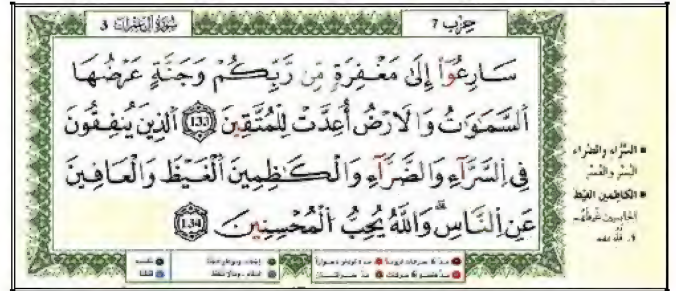 سورة آل عمران 3
حزب 7
سَارِعُوٓاْ إِلَىٰ مَغْفِرَةٍ مِّن رَّبِّكُمْ وَجَنَّةٍ عَرْضُهَا
اَ۬لسَّمَٰوَٰتُ وَالَارْضُ أُعِدَّتْ لِلْمُتَّقِينَ 133 اَ۬لذِينَ يُنفِقُونَ
فِے اِ۬لسَّرَّآءِ وَالضَّرَّآءِ وَالْكَٰظِمِينَ اَ۬لْغَيْظَ وَالْعَافِينَ
عَنِ اِ۬لنَّاسِۖ وَاللَّهُ يُحِبُّ اُ۬لْمُحْسِنِينَ 134
■ السَّرَّاء والضَّراء
اليُسْرِ والعُسْرِ
■ الكاظمين الغيظ